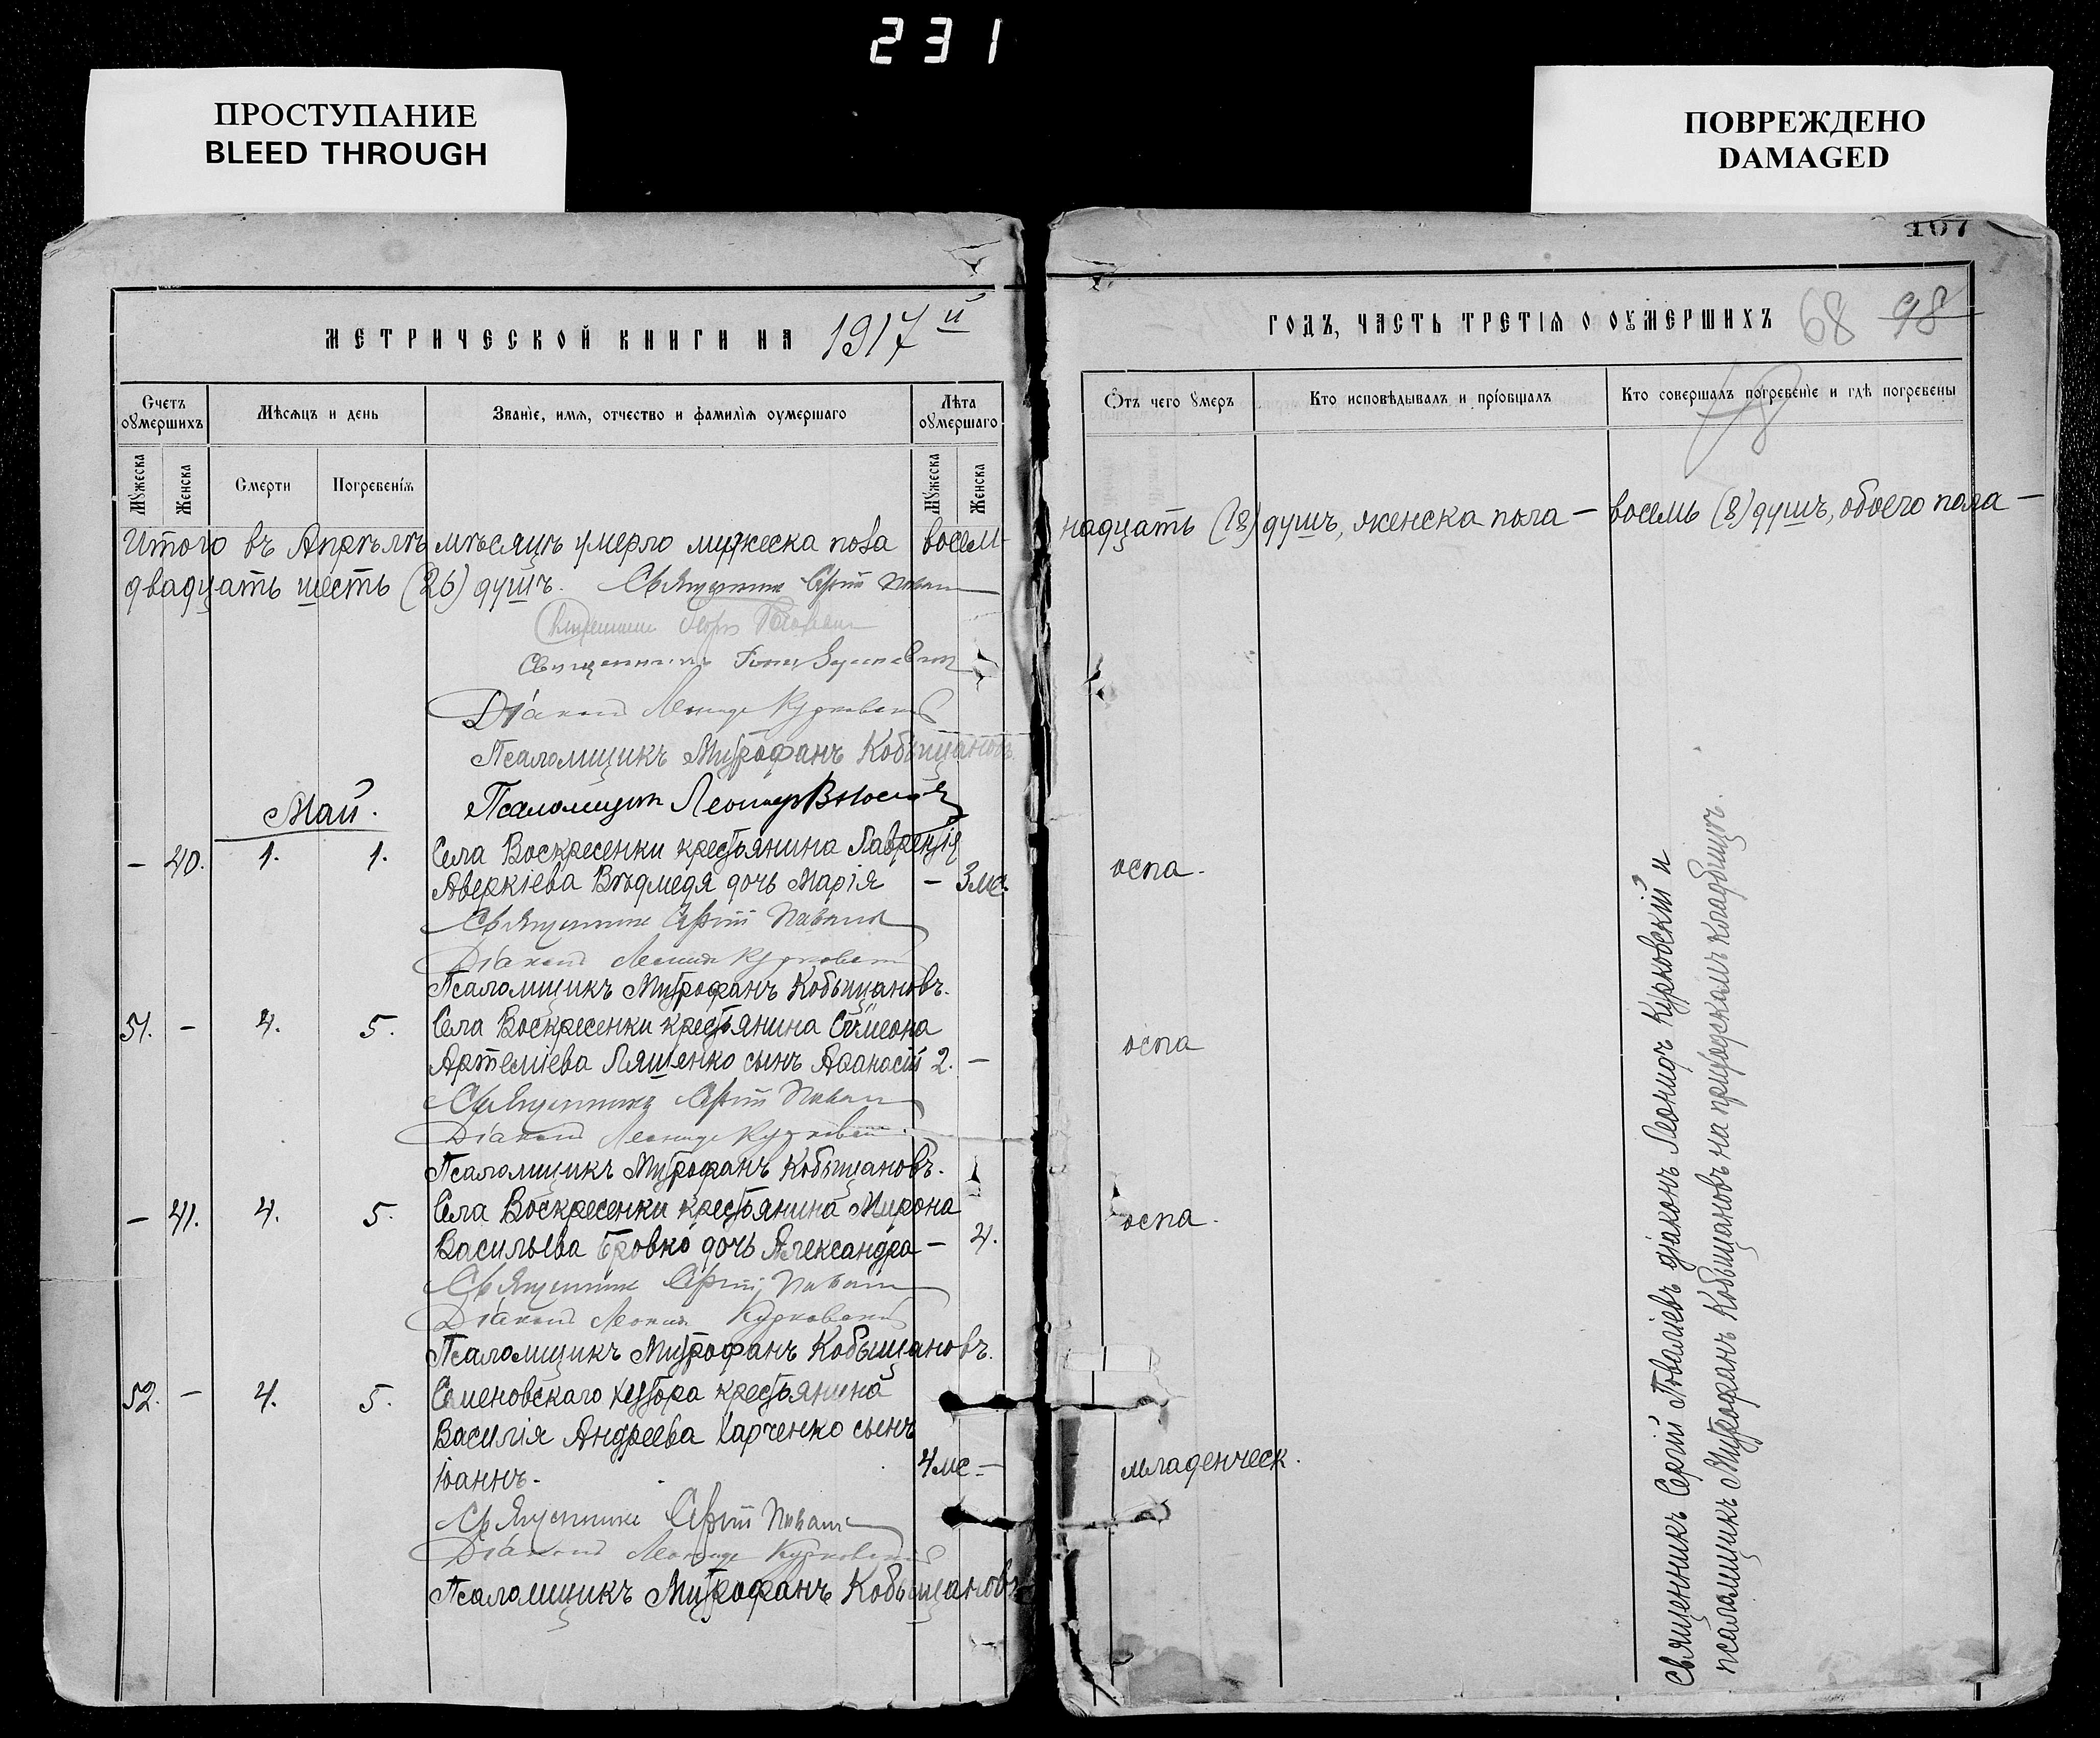 231
ПРОСТУПАНИЕ
BLEED THROUGH
ПОВРЕЖДЕНО
DAMAGED
107
МЕТРИЧЕСКОЙ КНИГИ НА 1917й
Счетъ оумершихъ
Мѣсяцъ и день
Званіе, имя, отчество и фамилія оумершаго
Лѣта оумершаго
Мужеска
Женска
Смерти
Погребенія
Мужеска
Женска
Итого въ Апрѣлѣ мѣсяцѣ умерло мужеска пола восем-
двадцать шесть (26) душъ. Священникъ Сергій
Священникъ
Діаконъ Леонидъ Курковскій
Псаломщикъ Митрофанъ Кобыщановъ
Псаломщикъ Леонидъ
Май.
– 40. 1. 1. Села Воскресенки крестьянина Лаврентія
Аверкіева Вѣдмедя дочь Марія – 3 мс.
Священникъ Сергій
Діаконъ Леонидъ Курковскій
Псаломщикъ Митрофанъ Кобыщановъ.
51. – 4. 5. Села Воскресенки крестьянина Сѵмеона
Артеміева Ляшенко сынъ Аѳанасій 2. –
Священникъ Сергій
Діаконъ Леонидъ Курковскій
Псаломщикъ Митрофанъ Кобыщановъ.
– 41. 4. 5. Села Воскресенки крестьянина Мирона
Васильева Бровко дочь Александра – 4.
Священникъ Сергій
Діаконъ Леонидъ Курковскій
Псаломщикъ Митрофанъ Кобыщановъ.
52. – 4. 5. Семеновскаго хутора крестьянина
Василія Андреева Харченко сынъ
Іоаннъ. 4 мс –
Священникъ Сергій
Діаконъ Леонидъ Курковскій
Псаломщикъ Митрофанъ Кобыщановъ
ГОДЪ, ЧАСТЬ ТРЕТІЯ О ОУМЕРШИХЪ 68 98
Отъ чего умеръ
Кто исповѣдывалъ и пріобщалъ
Кто совершалъ погребеніе и гдѣ погребены
надцать (18) душъ, женска пола – восемь (8) душъ, обоего пола –
оспа.
оспа
оспа.
младенческ.
Священникъ Сергій Поваліевъ діаконъ Леонидъ Курковскій и
псаломщикъ Митрофанъ Кобыщановъ на приходскомъ кладбищѣ.